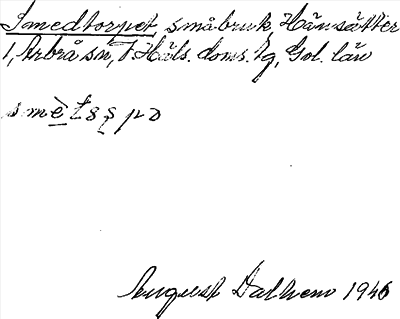 Smedtorpet, småbruk, Hänsätter
1, Arbrå sn, V. Häls. doms. tg, Gvl. län
smètsspo
August Dalhem 1946